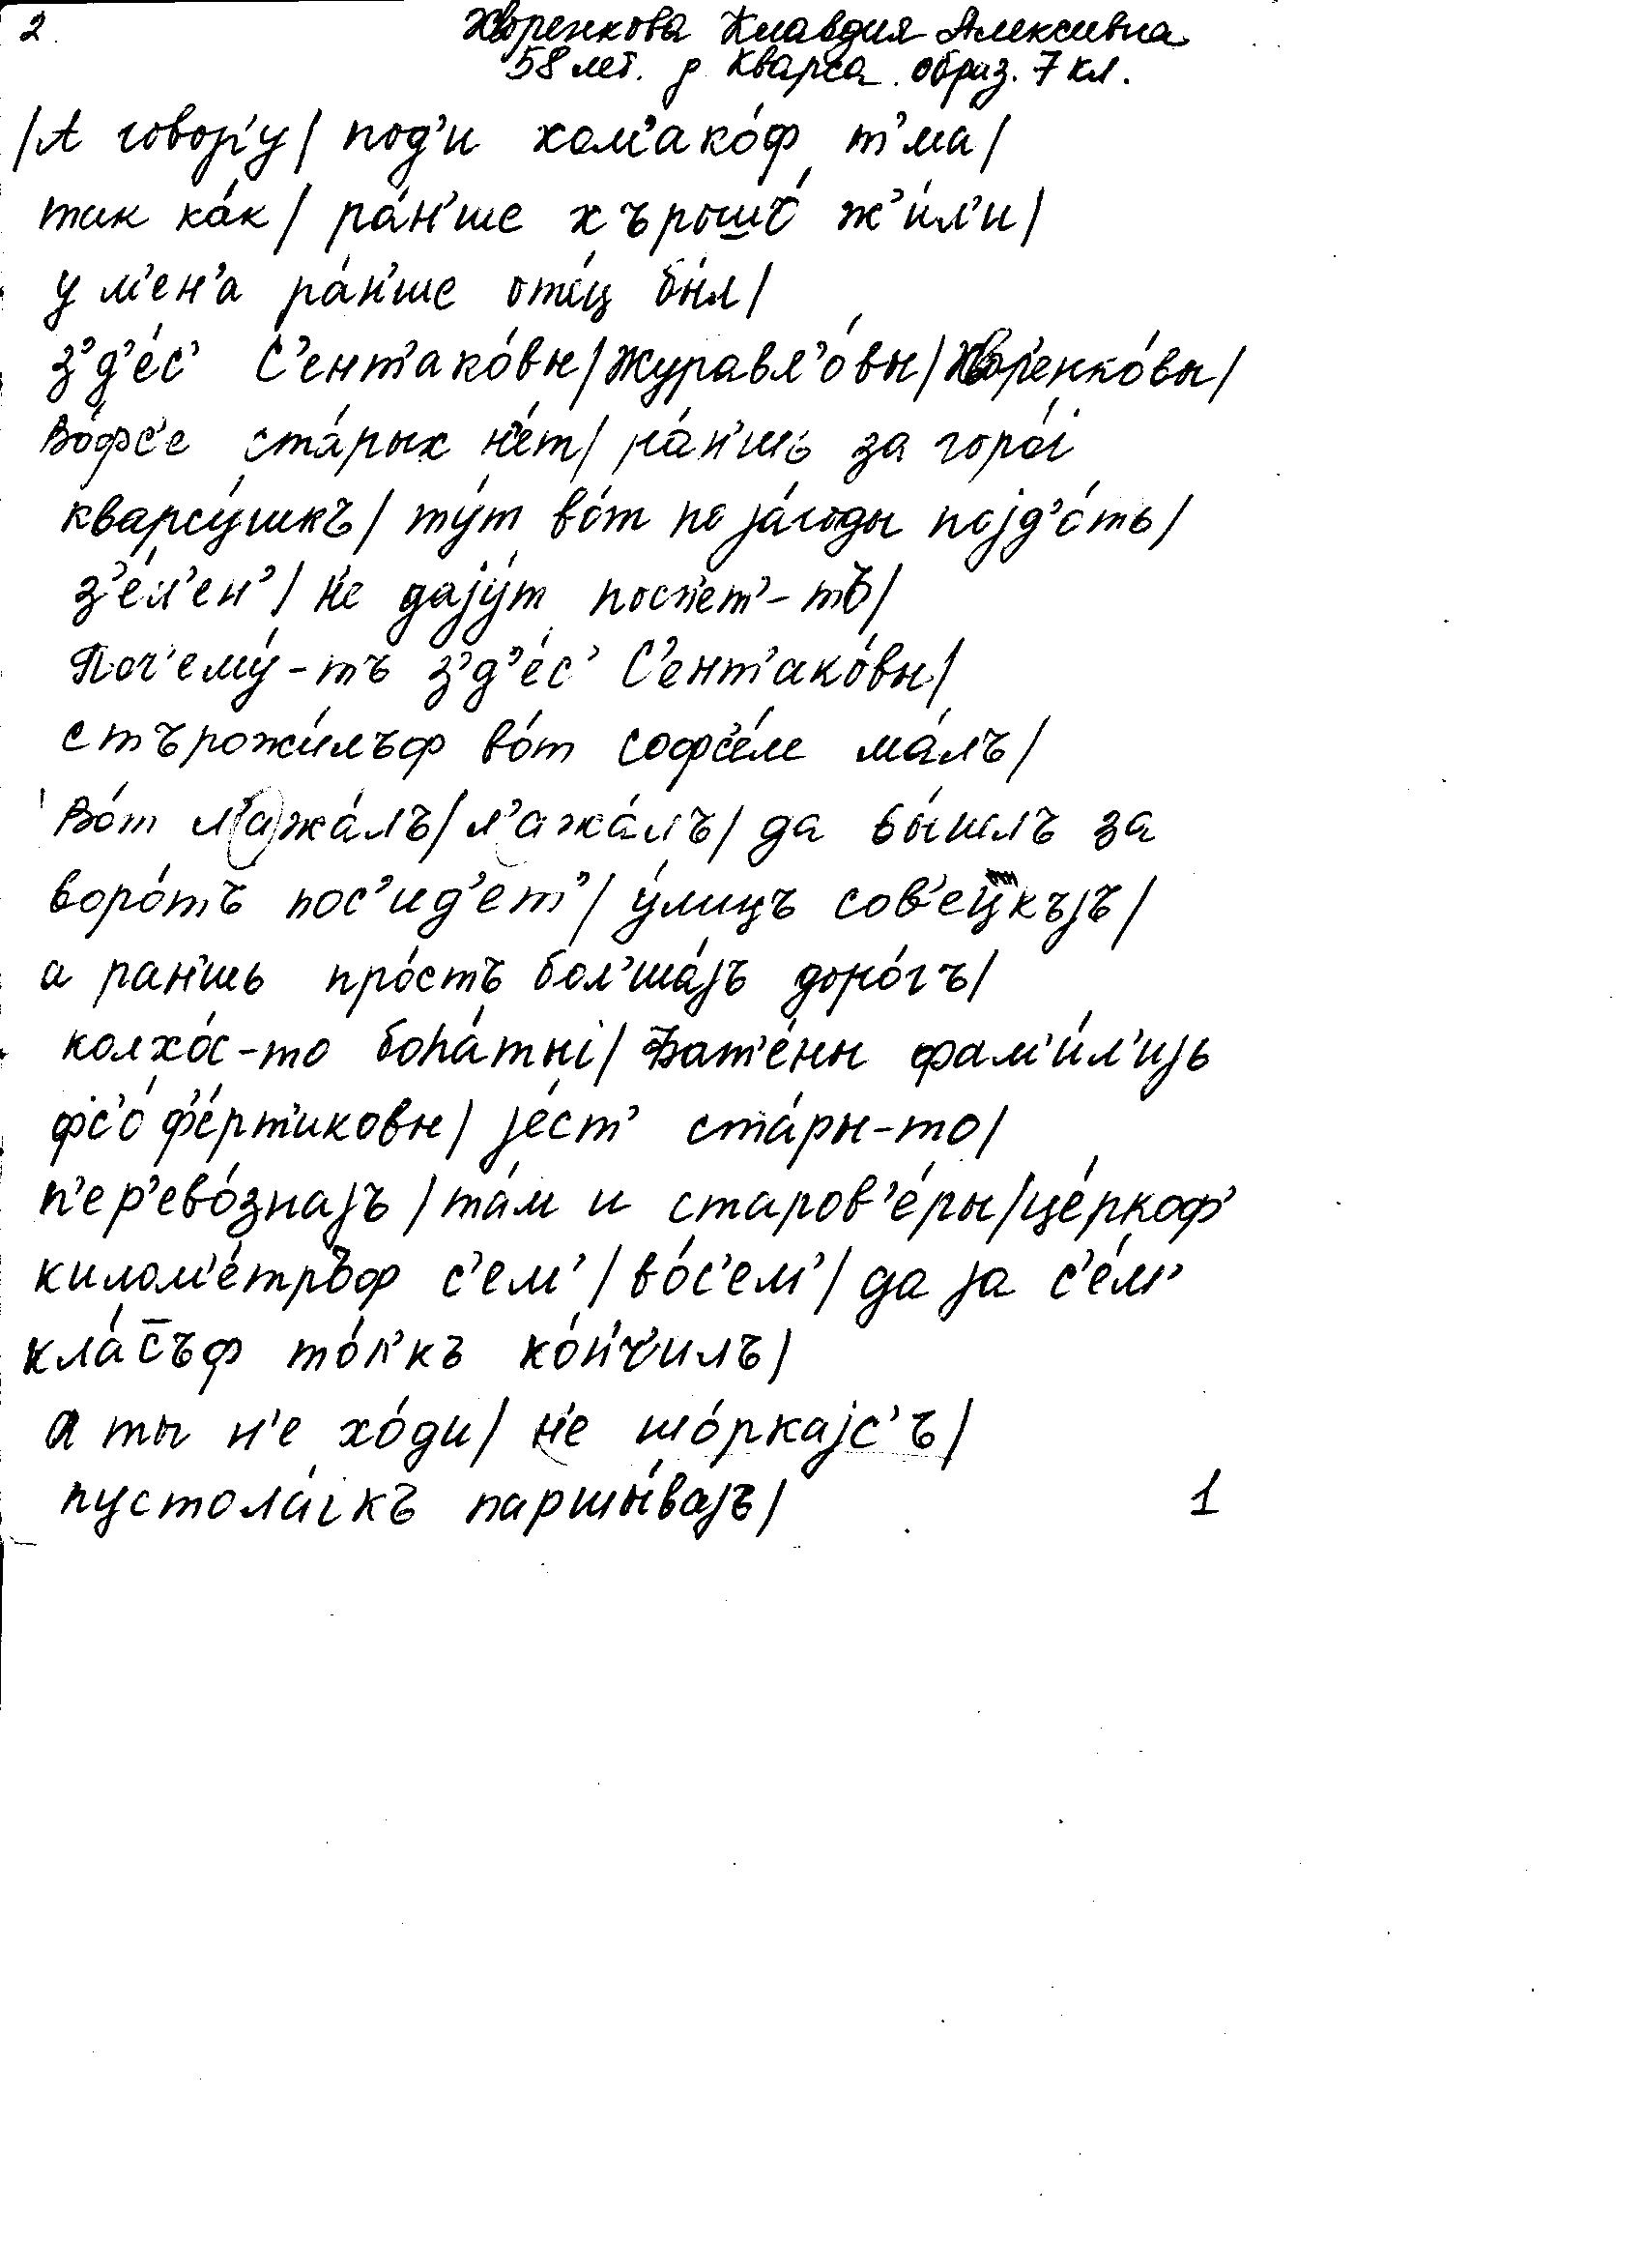 2.
Хворенкова Клавдия Алексивна
58 лет. д. Кварса. образ. 7 кл.
/А говор'у/ под'и хом'ако́ф т'ма/
так ка́к/ ра́н'ше хърошо́ ж'и́л'и/
у м'ен'а ра́н'ше оте́ц бы́л/
з'д'е́с' С'ент'ако́вы/Журавл'о́вы/Хвор'енко́вы/
Во́фс'е ста́рых н'е́т/ ра́н'шь за горо́і
кварсу́шкъ/ ту́т во́т по jа́годы поjд'о́ть/
з'е́л'ен'/ н'е даjу́т посп'ет'-тъ/
Поч'ему́-тъ з'д'е́с' С'ент'ако́вы/
стърожи́лъф во́т софс'е́м ма́лъ/
Во́т л'(а)жа́лъ/л'ажа́лъ/ да вы́шлъ за
воро́тъ пос'ид'ет'/ у́лицъ сов'ецкъjъ/
а ран'шь про́стъ бол'ша́jъ доро́гъ/
колхо́с-то боhа́тыі/ Бат'е́ны фам'и́л'иjь
фс'о́ ф'е́рт'иковы/ jе́ст' ста́ры-то/
п'ер'ево́знаjъ/та́м и старов'е́ры/це́ркоф'
килом'е́тръф с'ем'/во́с'ем'/ да jа с'е́м'
кла́с̄ъф то́л'къ ко́н'ч'илъ/
а ты н'е хо́ди/ н'е шо́ркаjс'ъ/
пустола́ікъ паршы́ваjъ/
1